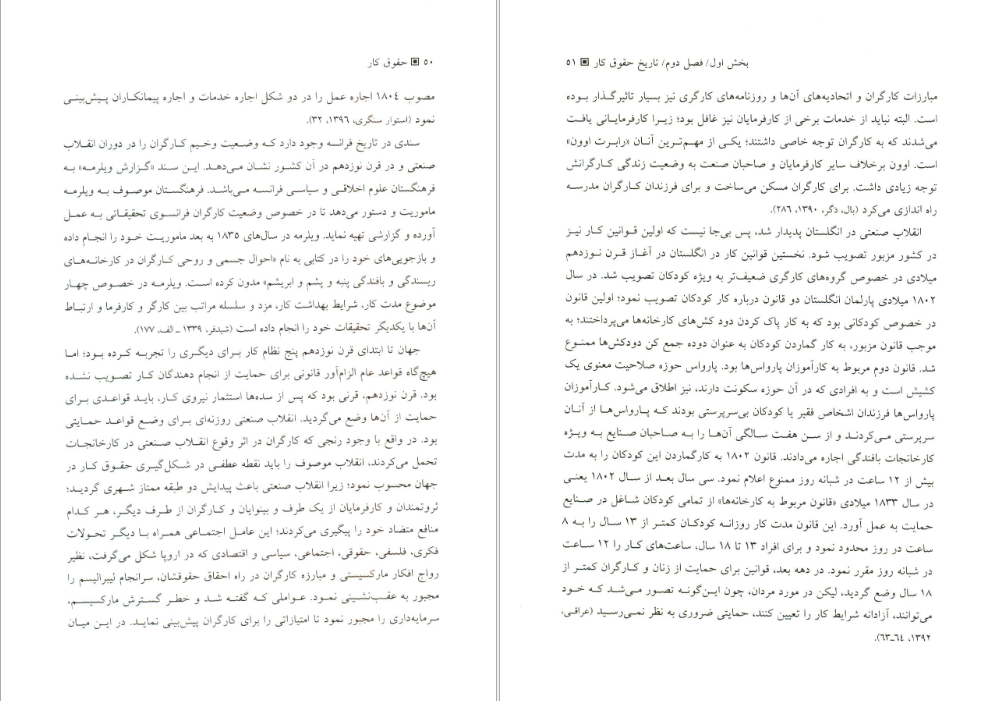 ۵۰ ▣ حقوق کار
مصوب ۱۸۰۴ اجاره عمل را در دو شکل اجاره خدمات و اجاره پیمانکاران پیش‌بینی
نمود (استوار سنگری، ۱۳۹۶، ۳۲).
سندی در تاریخ فرانسه وجود دارد که وضعیت وخیم کارگران را در دوران انقلاب
صنعتی و در قرن نوزدهم در آن کشور نشان می‌دهد. این سند «گزارش ویلرمه» به
فرهنگستان علوم اخلاقی و سیاسی فرانسه می‌باشد. فرهنگستان موصوف به ویلرمه
ماموریت و دستور می‌دهد تا در خصوص وضعیت کارگران فرانسوی تحقیقاتی به عمل
آورده و گزارشی تهیه نماید. ویلرمه در سال‌های ۱۸۳۵ به بعد ماموریت خود را انجام داده
و بازجویی‌های خود را در کتابی به نام «احوال جسمی و روحی کارگران در کارخانه‌های
ریسندگی و بافندگی پنبه و پشم و ابریشم» مدون کرده است. ویلرمه در خصوص چهار
موضوع مدت کار، شرایط بهداشت کار، مزد و سلسله مراتب بین کارگر و کارفرما و ارتباط
آن‌ها با یکدیگر تحقیقات خود را انجام داده است (شیدفر، ۱۳۳۹ ـ الف، ۱۷۷).
جهان تا ابتدای قرن نوزدهم پنج نظام کار برای دیگری را تجربه کرده بود؛ اما
هیچ‌گاه قواعد عام الزام‌آور قانونی برای حمایت از انجام دهندگان کار تصویب نشده
بود. قرن نوزدهم، قرنی بود که پس از سده‌ها استثمار نیروی کار، باید قواعدی برای
حمایت از آن‌ها وضع می‌گردید. انقلاب صنعتی روزنه‌ای برای وضع قواعد حمایتی
بود. در واقع با وجود رنجی که کارگران در اثر وقوع انقلاب صنعتی در کارخانجات
تحمل می‌کردند، انقلاب موصوف را باید نقطه عطفی در شکل‌گیری حقوق کار در
جهان محسوب نمود؛ زیرا انقلاب صنعتی باعث پیدایش دو طبقه ممتاز شهری گردید؛
ثروتمندان و کارفرمایان از یک طرف و بینوایان و کارگران از طرف دیگر، هر کدام
منافع متضاد خود را پیگیری می‌کردند؛ این عامل اجتماعی همراه با دیگر تحولات
فکری، فلسفی، حقوقی، اجتماعی، سیاسی و اقتصادی که در اروپا شکل می‌گرفت، نظیر
رواج افکار مارکسیستی و مبارزه کارگران در راه احقاق حقوقشان، سرانجام لیبرالیسم را
مجبور به عقب‌نشینی نمود. عواملی که گفته شد و خطر گسترش مارکسیسم،
سرمایه‌داری را مجبور نمود تا امتیازاتی را برای کارگران پیش‌بینی نماید. در این میان
بخش اول/ فصل دوم/ تاریخ حقوق کار ▣ ۵۱
مبارزات کارگران و اتحادیه‌های آن‌ها و روزنامه‌های کارگری نیز بسیار تاثیرگذار بوده
است. البته نباید از خدمات برخی از کارفرمایان نیز غافل بود؛ زیرا کارفرمایانی یافت
می‌شدند که به کارگران توجه خاصی داشتند؛ یکی از مهم‌ترین آنان «رابرت اوون»
است. اوون برخلاف سایر کارفرمایان و صاحبان صنعت به وضعیت زندگی کارگرانش
توجه زیادی داشت. برای کارگران مسکن می‌ساخت و برای فرزندان کارگران مدرسه
راه اندازی می‌کرد (بال، دگر، ۱۳۹۰، ۲۸۶).
انقلاب صنعتی در انگلستان پدیدار شد، پس بی‌جا نیست که اولین قوانین کار نیز
در کشور مزبور تصویب شود. نخستین قوانین کار در انگلستان در آغاز قرن نوزدهم
میلادی در خصوص گروه‌های کارگری ضعیف‌تر به ویژه کودکان تصویب شد. در سال
۱۸۰۲ میلادی پارلمان انگلستان دو قانون درباره کار کودکان تصویب نمود؛ اولین قانون
در خصوص کودکانی بود که به کار پاک کردن دود کش‌های کارخانه‌ها می‌پرداختند؛ به
موجب قانون مزبور، به کار گماردن کودکان به عنوان دوده جمع کن دودکش‌ها ممنوع
شد. قانون دوم مربوط به کارآموزان پارواس‌ها بود. پارواس حوزه صلاحیت معنوی یک
کشیش است و به افرادی که در آن حوزه سکونت دارند، نیز اطلاق می‌شود. کارآموزان
پارواس‌ها فرزندان اشخاص فقیر یا کودکان بی‌سرپرستی بودند که پارواس‌ها از آنان
سرپرستی می‌کردند و از سن هفت سالگی آن‌ها را به صاحبان صنایع به ویژه
کارخانجات بافندگی اجاره می‌دادند. قانون ۱۸۰۲ به کارگماردن این کودکان را به مدت
بیش از ۱۲ ساعت در شبانه روز ممنوع اعلام نمود. سی سال بعد از سال ۱۸۰۲ یعنی
در سال ۱۸۳۳ میلادی «قانون مربوط به کارخانه‌ها» از تمامی کودکان شاغل در صنایع
حمایت به عمل آورد. این قانون مدت کار روزانه کودکان کمتر از ۱۳ سال را به ۸
ساعت در روز محدود نمود و برای افراد ۱۳ تا ۱۸ سال، ساعت‌های کار را ۱۲ ساعت
در شبانه روز مقرر نمود. در دهه بعد، قوانین برای حمایت از زنان و کارگران کمتر از
۱۸ سال وضع گردید، لیکن در مورد مردان، چون این‌گونه تصور می‌شد که خود
می‌توانند، آزادانه شرایط کار را تعیین کنند، حمایتی ضروری به نظر نمی‌رسید (عراقی،
۱۳۹۲، ۶۴ـ۶۳).